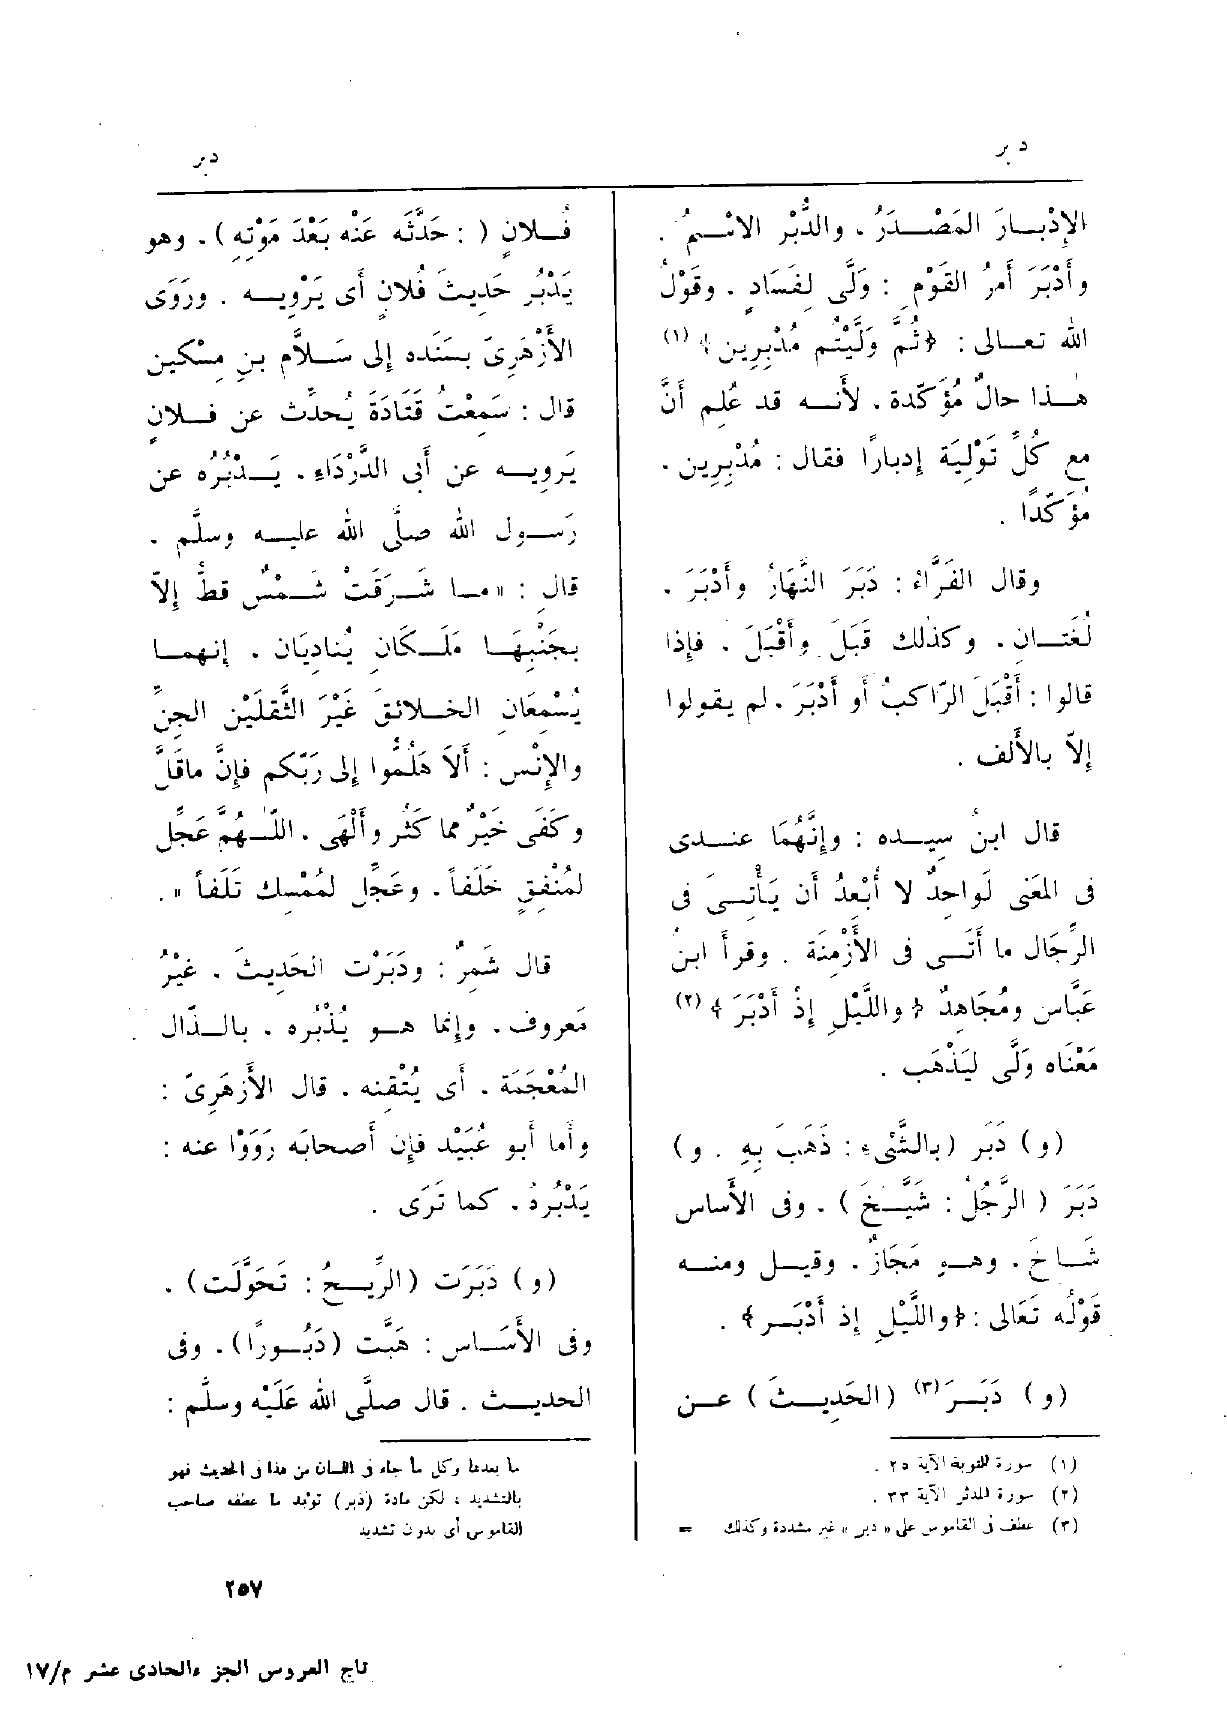 دبر
دبر
الإِدْبــارَ المَصْــدَرُ ، والدُّبْر الاسْــمُ .
وأَدْبَرَ أَمرُ القَوْمِ : وَلَّى لِفَسَادٍ . وقَوْلُ
الله تعــالى : ﴿ثُمَّ وَلَّيْتُم مُدْبِرِين﴾ (١)
هــذا حالٌ مُؤَكّدة ، لأَنــه قد عُلِم أَنَّ
مع كُلِّ تَوْلِيَة إِدبارًا فقال : مُدْبِرِين ،
مُؤَكِّدًا .
وقال الفَرَّاءُ : دَبَرَ النَّهَارُ وأَدْبَرَ ،
لُغَتــان ، وكذلك قَبَلَ وأَقْبَلَ . فإِذا
قالوا : أَقْبَلَ الرّاكبُ أَو أَدْبَرَ ، لم يقولوا
إِلاّ بالأَلف .
قال ابنُ سِيــده : وإِنَّهُمَا عنــدى
فى المَعْنى لَواحِدٌ لا أُبْعِدُ أَن يَأْتِــىَ فى
الرِّجَال ما أَتَــى فى الأَزْمِنَة . وقرأَ ابنُ
عَبَّاس ومُجَاهِدٌ ﴿ واللَّيْلِ إِذْ أَدْبَرَ ﴾ (٢)
مَعْنَاه وَلَّى لِيَذْهَب .
(و) دَبَر (بالشَّىْءِ : ذَهَبَ بِهِ . و)
دَبَرَ ( الرَّجُلُ : شَيَّــخَ ) ، وفى الأَساس
شَــاخَ ، وهــو مَجَازٌ ، وقيــل ومنــه
قَوْلُه تَعَالى : ﴿واللَّيْلِ إِذ أَدْبَــر﴾ .
(و) دَبَــرَ (٣) (الحَدِيــثَ ) عــن
(١) سورة التوبة الآية ٢٥ .
(٢) سورة المدثر الآية ٣٣ .
(٣) عطف فى القاموس على « دبر » غير مشددة وكذلك =
فُــلانٍ ( : حَدَّثَه عَنْه بَعْدَ مَوْتِهِ ) ، وهو
يَدْبُر حَدِيثَ فُلانٍ أَى يَرْوِيــه . ورَوَى
الأَزْهَرِىّ بسَنَده إِلى سَــلاَّم بنِ مِسْكين
قال : سَمِعْتُ قَتَادَةَ يُحدِّث عن فــلانٍ
يَروِيــه عن أَبى الدَّرْدَاءِ ، يَــدْبُرُه عن
رَســول الله صلَّى الله عليــه وسلَّم ،
قال : « مــا شَــرَقَتْ شَــمْسٌ قطُّ إِلاّ
بجَنْبِهَــا مَلَــكَانِ يُنادِيَان ، إِنهمــا
يُسْمِعَانِ الخــلائقَ غَيْرَ الثَّقلَيْنِ الجِنِّ
والإِنْس : أَلاَ هَلُمُّوا إِلى رَبّكم فإِنَّ ماقَلَّ
وكَفَى خَيْرٌ مما كَثُر وأَلْهَى ، اللّــهُمَّ عَجِّل
لمُنْفِقٍ خَلَفاً ، وعَجِّل لمُمْسِك تَلَفاً » .
قال شَمِرٌ : ودَبَرْت الحَديثَ ، غيْرُ
مَعروف ، وإِنما هــو يُذْبُره ، بالــذّال
المُعْجَمَة ، أَى يُتْقِنه ، قال الأَزهَرِىّ :
وأَما أَبو عُبَيْد فإِن أَصحابَه رَوَوْا عنه :
يَدْبُره ، كما تَرَى .
(و) دَبَرَت (الرِّيــحُ : تَحَوَّلَت) ،
وفى الأَسَــاس : هَبَّت (دَبُــورًا) ، وفى
الحديــث . قال صلَّى الله عَلَيْه وسلَّم :
ما بعدها وكل ما جاء فى اللسان من هذا فى الحديث فهو
بالتشديد ، لكن مادة (ذبر) تؤيد ما عطفه صاحب
القاموس أى بدون تشديد
٢٥٧
تاج العروس الجزء الحادى عشر م/١٧